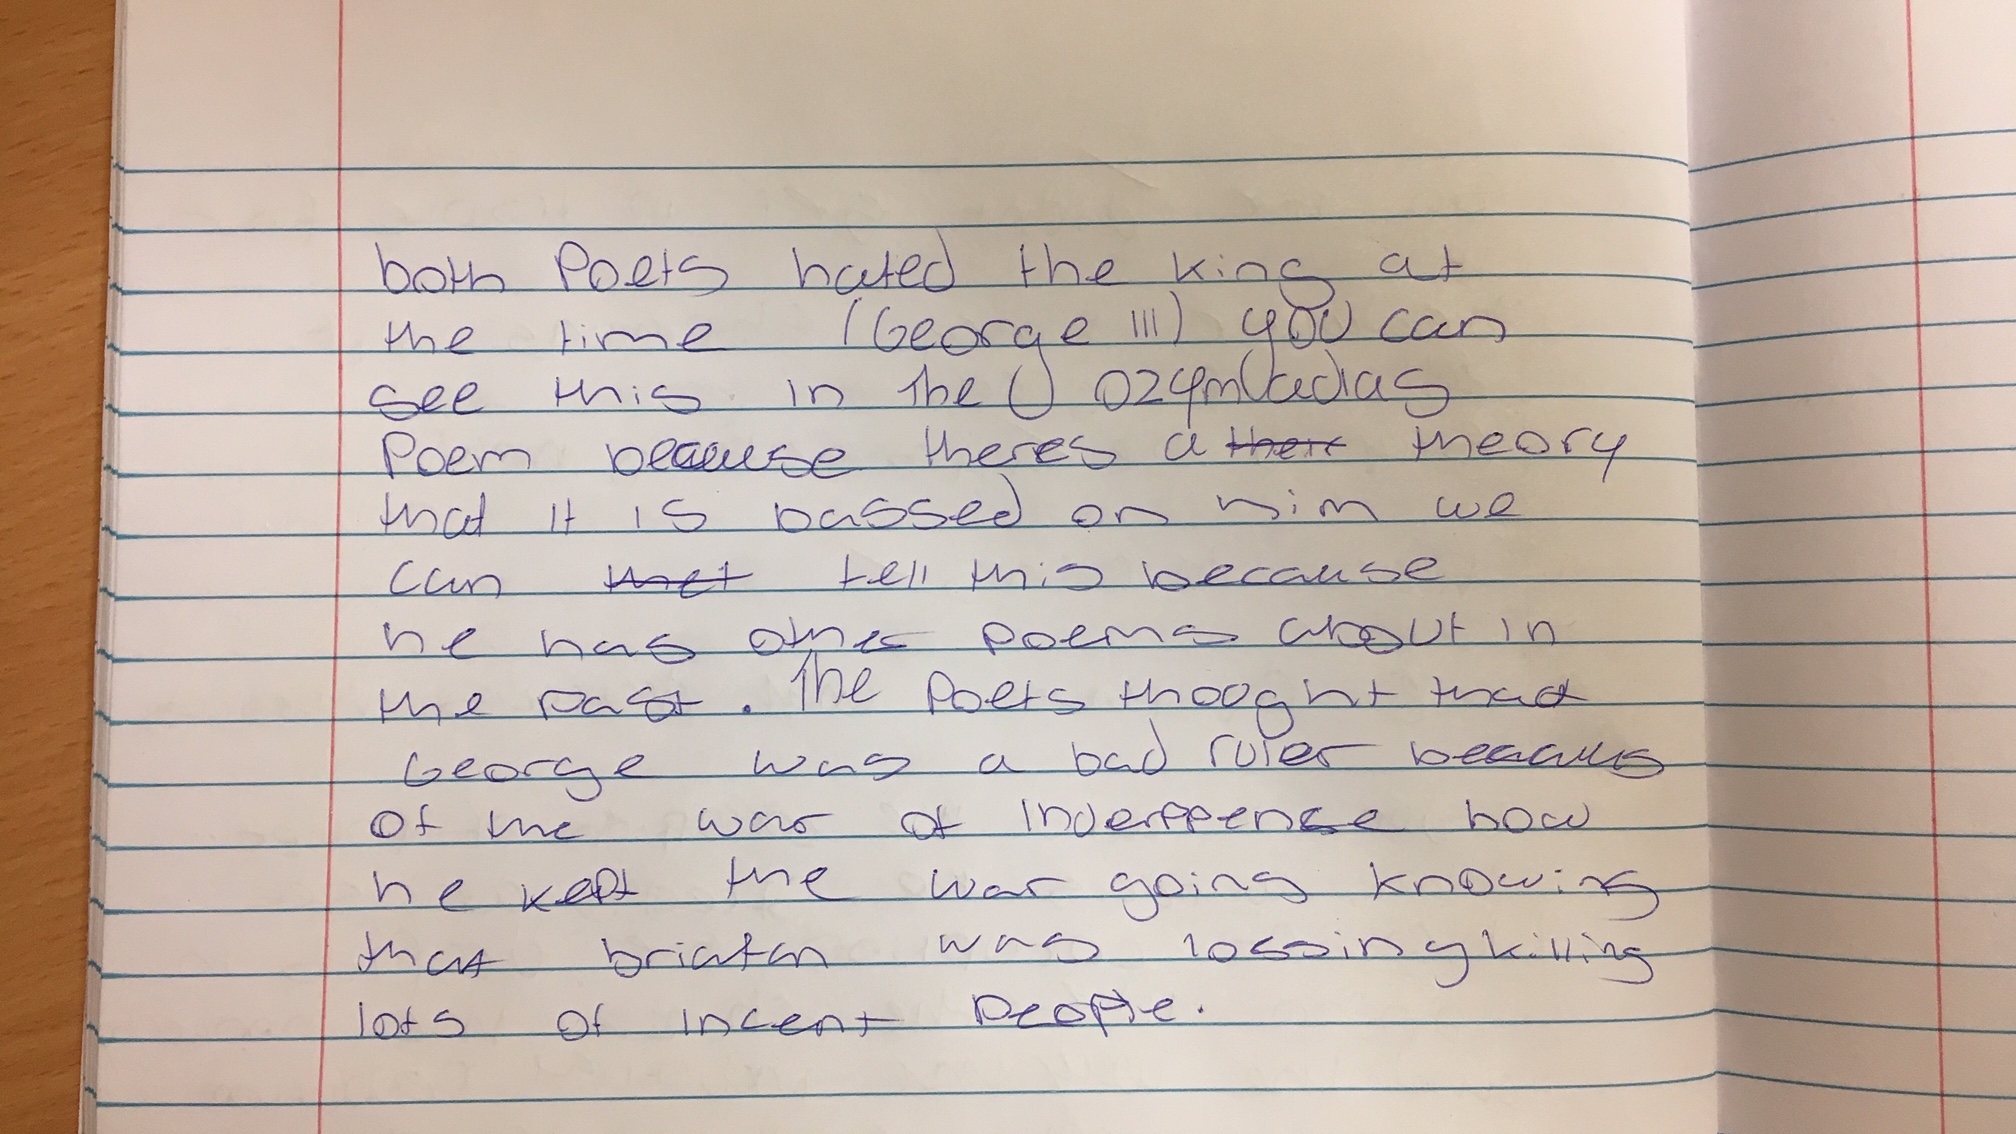 both Poets hated the king at
the time (George III) you can
see this in the () ozymadias
Poem because theres a there theory
that it is bassed on him we
can that tell this because
he has other poems about in
the past. The Poets thooght that
George was a bad ruler because
of the war of Inderppense how
he kept the war going knowing
that briatan was lossing killing
lots of incent people.